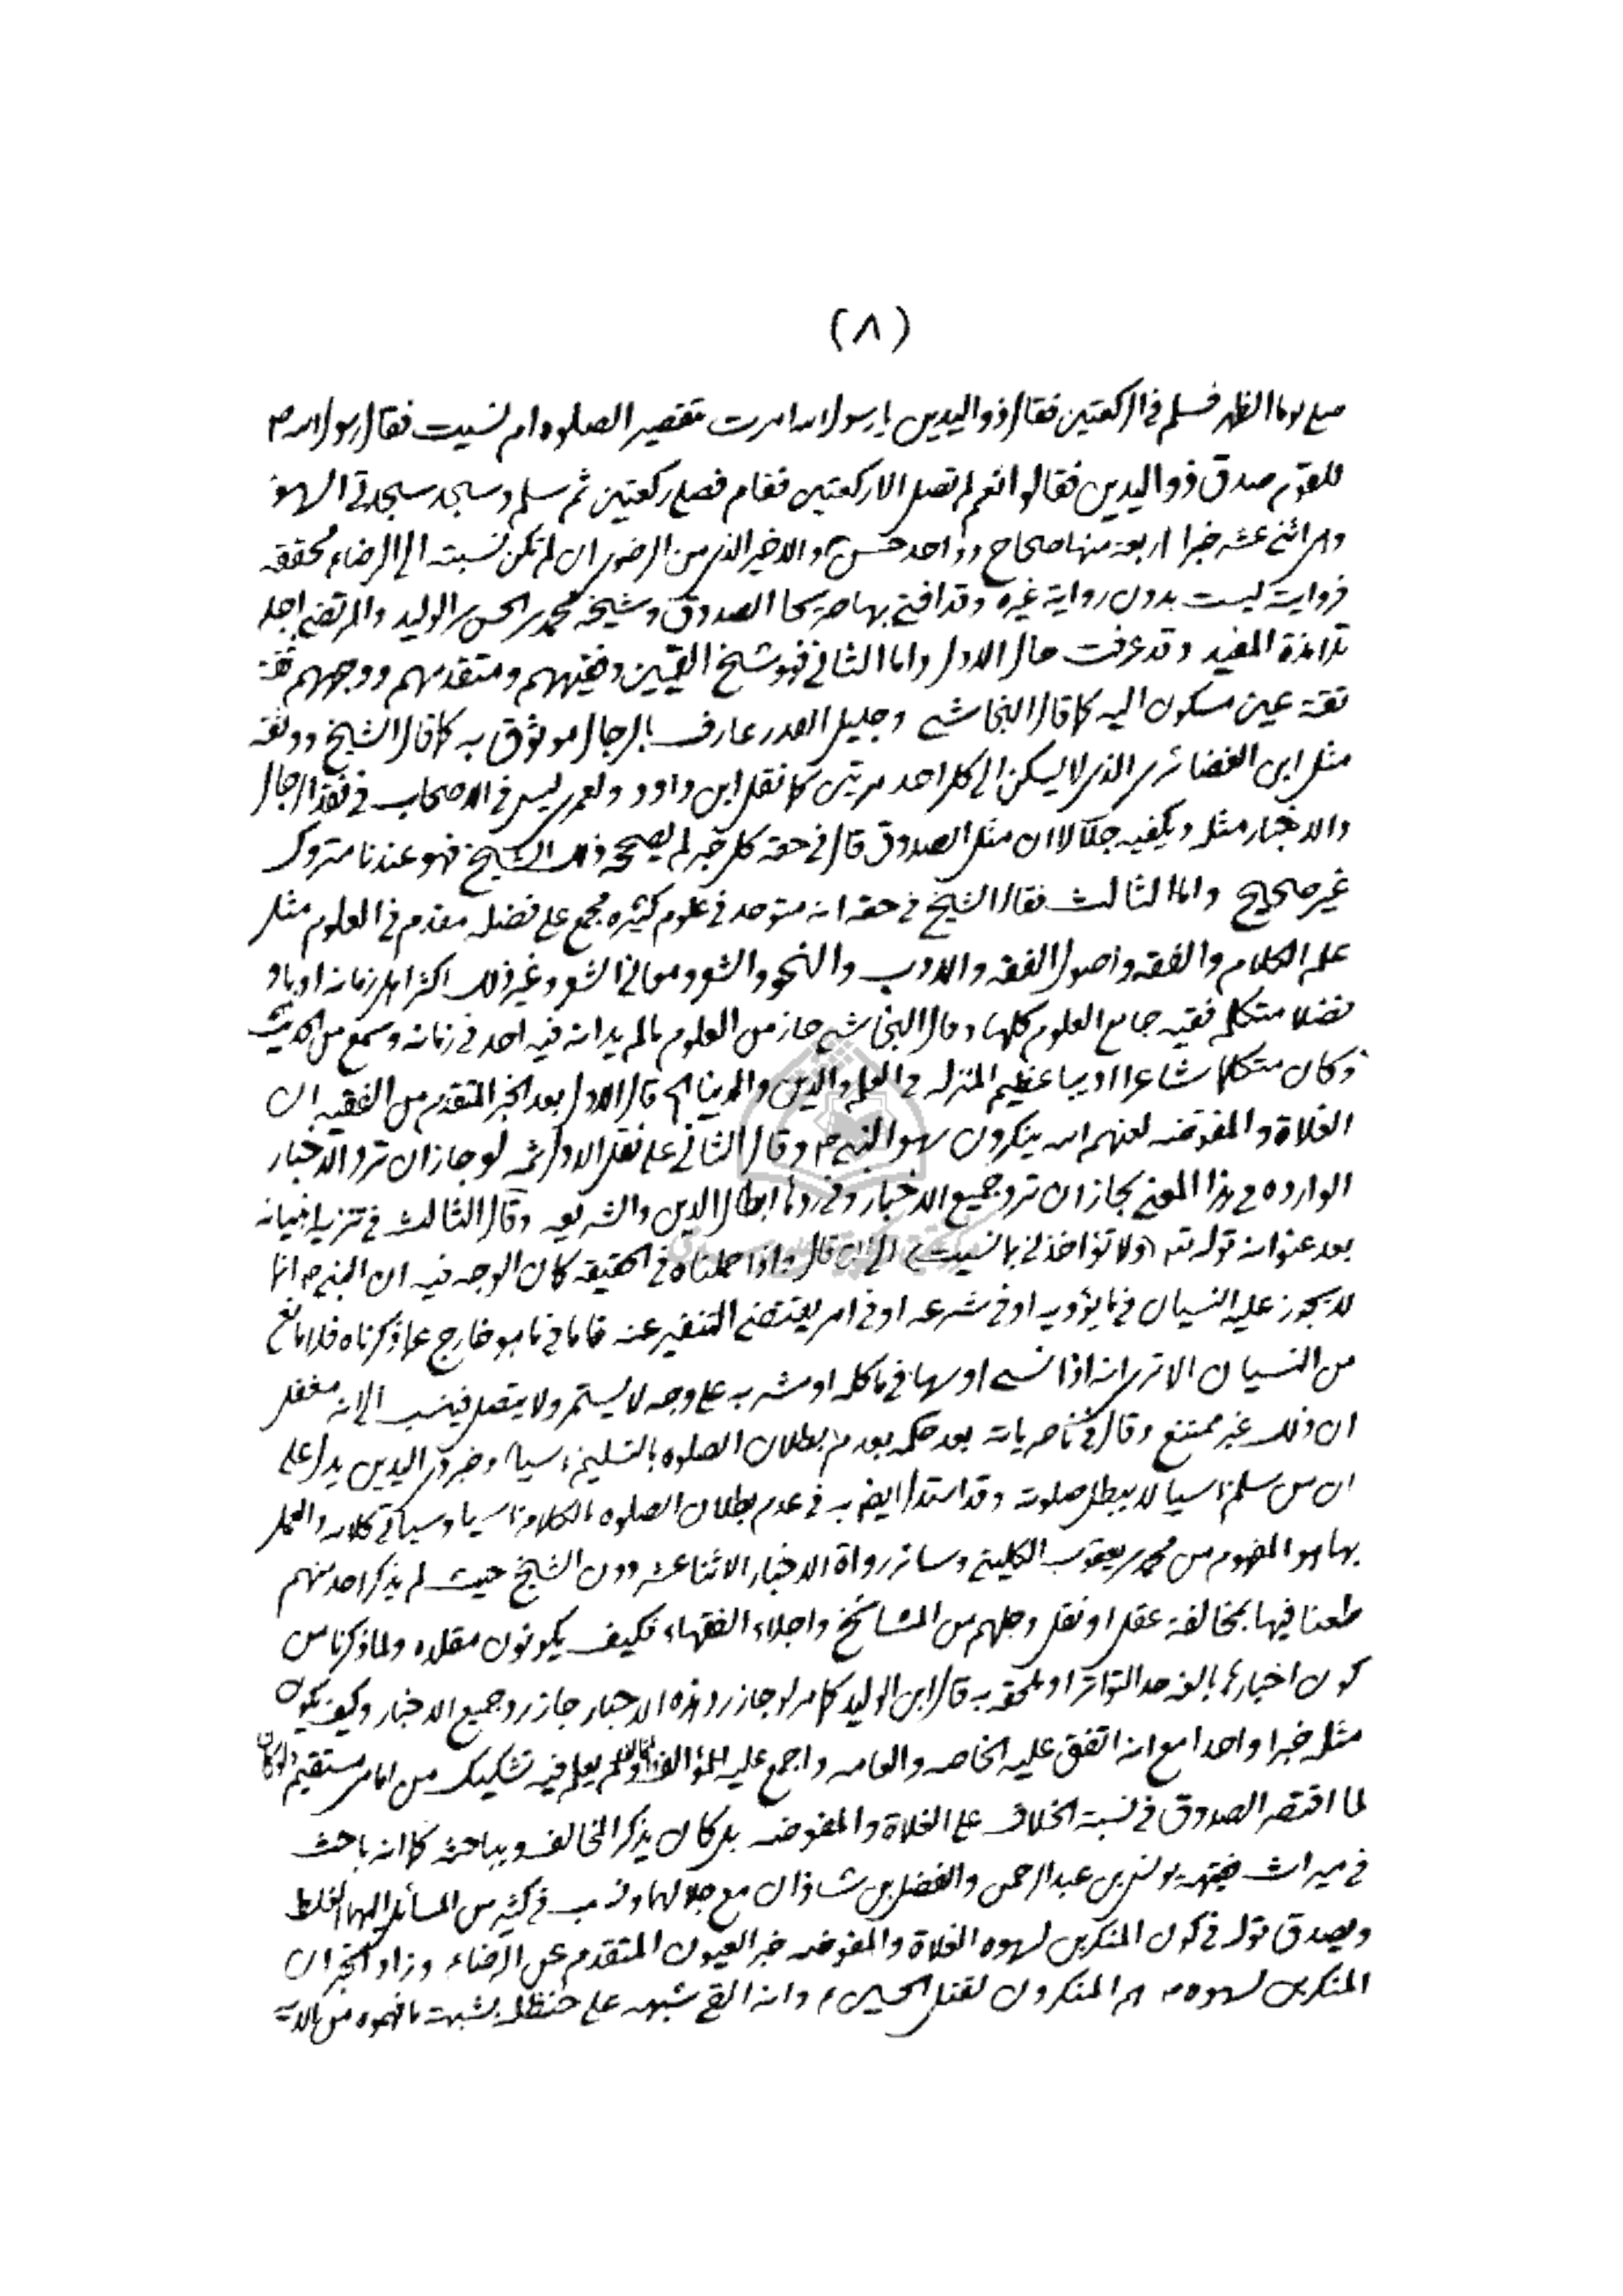 (٨)
صلى يوما الظهر فسلم في الركعتين فقال ذو اليدين يا رسول الله امرت بتقصير الصلوه ام نسيت فقال رسول الله ص
للقوم صدق ذو اليدين فقالوا نعم لم تصل الا ركعتين فقام فصلى ركعتين ثم سلم وسجد سجدتي السهو
وهي اثني عشر خبرا اربعة منها صحاح وواحد حسن والاخير الذي من الرضوي ان لم تكن نسبته الى الرضاء محققه
فروايته ليست بدون رواية غيره وقد افتى بها صريحا الصدوق وشيخه محمد بن الحسن بن الوليد والمرتضى اجل
تلامذة المفيد وقد عرفت حال الاول واما الثاني فهو شيخ القميين وفقيههم ومتقدمهم ووجههم ثقة
ثقة عين مسكون اليه كما قال النجاشي وجليل القدر عارف بالرجال موثوق به كما قال الشيخ ووثقه
مثل ابن الغضائري الذي لا يسكن الى كل احد مرتين كما نقل ابن داود ولعمري ليس في الاصحاب في نقد الرجال
والاخبار مثله ويكفيه جلالا ان مثل الصدوق قال في حقه كل خبر لم يصححه ذلك الشيخ فهو عندنا متروك
غير صحيح واما الثالث فقال الشيخ في حقه انه متوحد في علوم كثيره مجمع على فضله مقدم في العلوم مثل
علم الكلام والفقه واصول الفقه والادب والنحو والشعر ومعاني الشعر وغير ذلك اكثر اهل زمانه ادبا و
فضلا متكلم فقيه جامع العلوم كلها وقال النجاشي حاز من العلوم ما لم يدانه فيه احد في زمانه وسمع من الحديث
وكان متكلما شاعرا اديبا عظيم المنزله في العلم والدين والدنيا قال الاول بعد الخبر المتقدم من الفقيه ان
الغلاة والمفوضه لعنهم الله ينكرون سهو النبي ص وقال الثاني على نقل الاول ثمه لو جاز ان ترد الاخبار
الوارده في هذا المعنى لجاز ان ترد جميع الاخبار وفي ردها ابطال الدين والشريعه وقال الثالث في تنزيه انبيائه
بعد عنوانه قوله تعـ (ولا تؤاخذني بما نسيت) الى ان قال واذا حملناه في الحقيقه كان الوجه فيه ان النبي ص انما
لا يجوز عليه النسيان فيما يؤديه او في شرعه او في امر يقتضي التنفير عنه فاما في ما هو خارج عما ذكرناه فلا مانع
من النسيان الا ترى انه اذا نسي او سها في ماكله او مشربه على وجه لا يستمر ولا يتصل فينسب الى انه مغفل
ان ذلك غير ممتنع وقال في ناصريات بعد حكمه بعدم بطلان الصلوه بالتسليم ناسيا وخبر ذي اليدين يدل على
ان من سلم ناسيا لا يبطل صلوته وقد استدل ايضا به في عدم بطلان الصلوه بالكلام ناسيا وسياتي كلامه والعمل
بها هو المفهوم من محمد بن يعقوب الكليني وسائر رواة الاخبار الاثنا عشر دون الشيخ حيث لم يذكر احد منهم
طعنا فيها بمخالفة عقل او نقل وجلهم من المشايخ واجلاء الفقهاء فكيف يكونون مقلده ولما ذكرنا من
كون اخبارها بالغه حد التواتر او ملحقه به قال ابن الوليد كما مر لو جاز رد هذه الاخبار جاز رد جميع الاخبار وكيف يكون
مثله خبرا واحدا مع انه اتفق عليه الخاصه والعامه واجمع عليه المؤالف ولم يعلم فيه تشكيك من امامي مستقيم ولو كان
لما اقتصر الصدوق في نسبة الخلاف على الغلاة والمفوضه بل كان يذكر المخالف ويباحثه كما انه باحث
في ميراث فقيهه يونس بن عبد الرحمن والفضل بن شاذان مع جلالهما ونسب في كثير من المسائل اليهما الغلط
ويصدق قوله في كون المنكرين لسهوه الغلاة والمفوضه خبر العيون المتقدم عن الرضاء وزاد الخبر ان
المنكرين لسهوه ص هم المنكرون لقتل الحسين ع وانه القي شبهه على حنظلة بشبهة ما فهموه من الاية